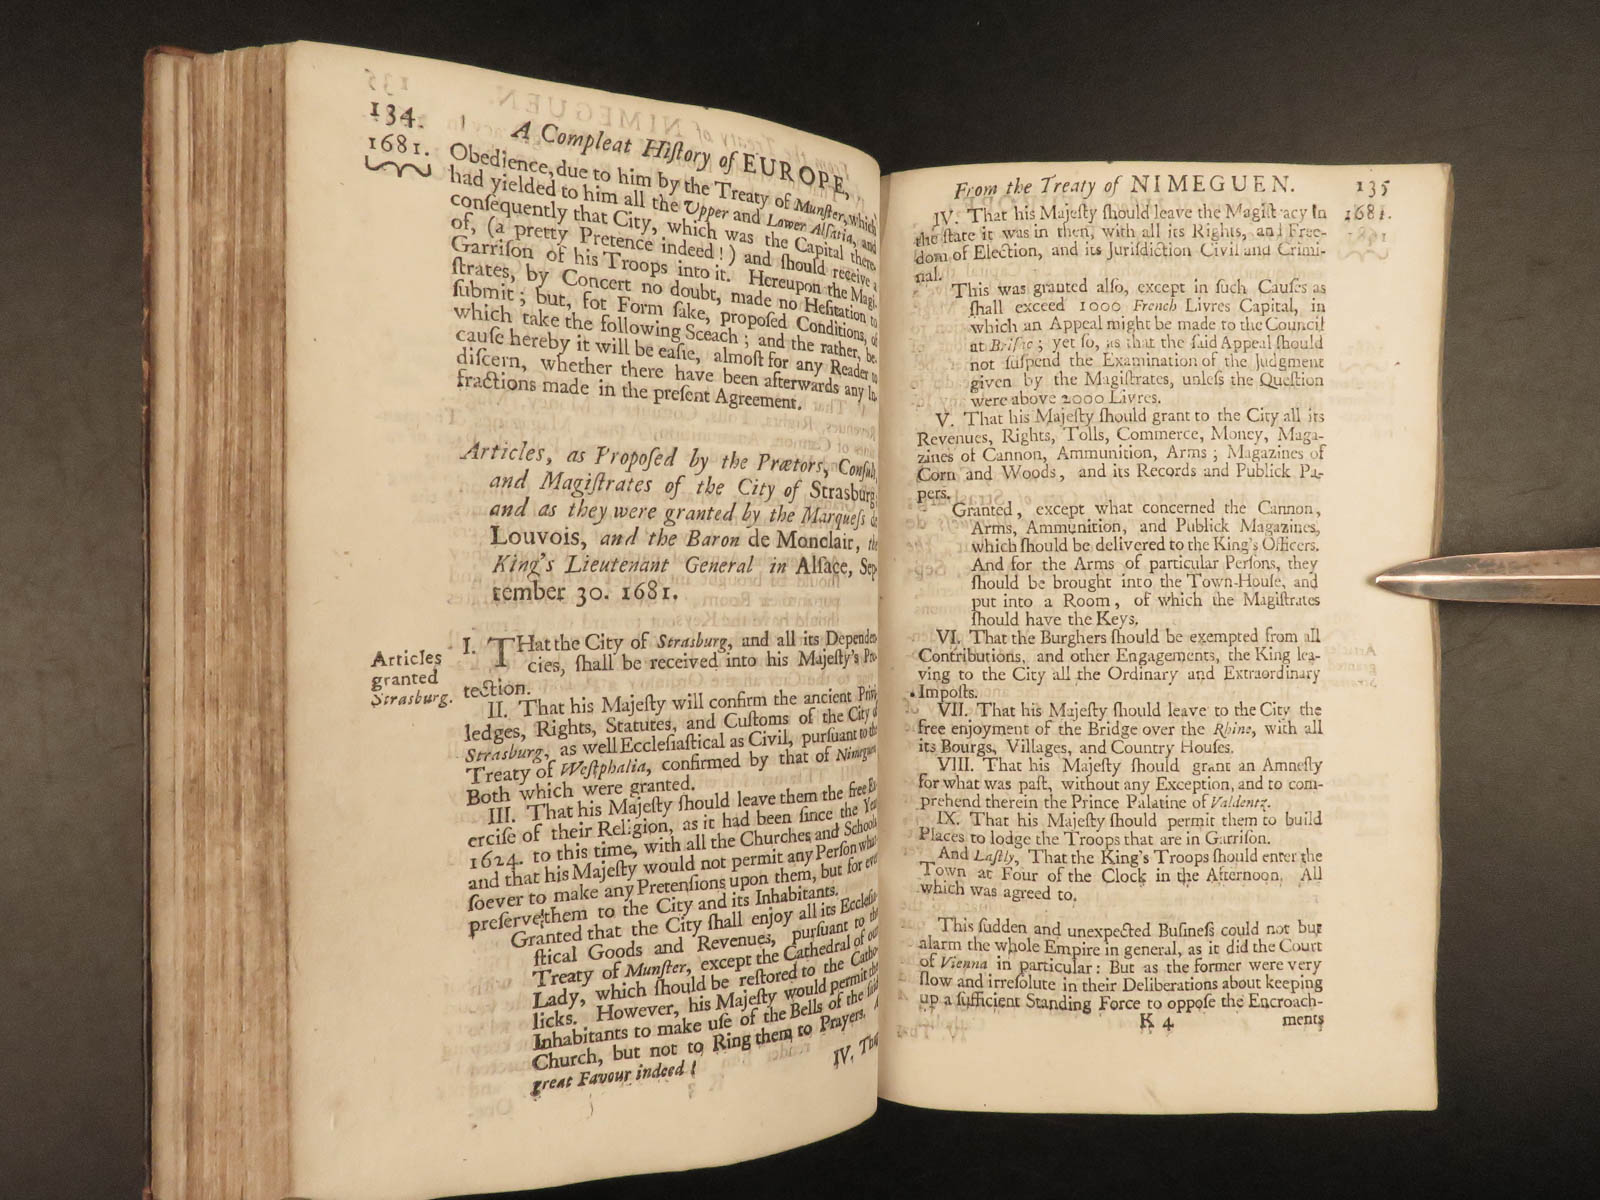 134. A Compleat Hiſtory of EUROPE,
1681.
Obedience, due to him by the Treaty of Munſter, which
had yielded to him all the Upper and Lower Alſatia, and
conſequently that City, which was the Capital there-
of, (a pretty Pretence indeed!) and ſhould receive a
Garriſon of his Troops into it. Hereupon the Magi-
ſtrates, by Concert no doubt, made no Heſitation to
ſubmit; but, for Form ſake, propoſed Conditions, of
which take the following Sceach; and the rather, be-
cauſe hereby it will be eaſie, almoſt for any Reader to
diſcern, whether there have been afterwards any In-
fractions made in the preſent Agreement.
Articles, as Propoſed by the Prætors, Conſuls,
and Magiſtrates of the City of Strasburg,
and as they were granted by the Marqueſs de
Louvois, and the Baron de Monclair, the
King's Lieutenant General in Alſace, Sep-
tember 30. 1681.
Articles
granted
Strasburg.
I. THat the City of Strasburg, and all its Dependen-
cies, ſhall be received into his Majeſty's Pro-
tection.
II. That his Majeſty will confirm the ancient Privi-
ledges, Rights, Statutes, and Cuſtoms of the City of
Strasburg, as well Eccleſiaſtical as Civil, purſuant to the
Treaty of Weſtphalia, confirmed by that of Nimeguen.
Both which were granted.
III. That his Majeſty ſhould leave them the free Ex-
erciſe of their Religion, as it had been ſince the Year
1624. to this time, with all the Churches and Schools
and that his Majeſty would not permit any Perſon what-
ſoever to make any Pretenſions upon them, but for ever
preſerve them to the City and its Inhabitants.
Granted that the City ſhall enjoy all its Eccleſia-
ſtical Goods and Revenues, purſuant to the
Treaty of Munſter, except the Cathedral of our
Lady, which ſhould be reſtored to the Catho-
licks. However, his Majeſty would permit the
Inhabitants to make uſe of the Bells of the ſaid
Church, but not to Ring them to Prayers. A
great Favour indeed!
IV. That
From the Treaty of NIMEGUEN. 135
1681.
IV. That his Majeſty ſhould leave the Magiſtracy in
the ſtate it was in then, with all its Rights, and Free-
dom of Election, and its Juriſdiction Civil and Crimi-
nal.
This was granted alſo, except in ſuch Cauſes as
ſhall exceed 1000 French Livres Capital, in
which an Appeal might be made to the Council
at Briſac; yet ſo, as that the ſaid Appeal ſhould
not ſuſpend the Examination of the Judgment
given by the Magiſtrates, unleſs the Queſtion
were above 2000 Livres.
V. That his Majeſty ſhould grant to the City all its
Revenues, Rights, Tolls, Commerce, Money, Maga-
zines of Cannon, Ammunition, Arms; Magazines of
Corn and Woods, and its Records and Publick Pa-
pers.
Granted, except what concerned the Cannon,
Arms, Ammunition, and Publick Magazines,
which ſhould be delivered to the King's Officers.
And for the Arms of particular Perſons, they
ſhould be brought into the Town-Houſe, and
put into a Room, of which the Magiſtrates
ſhould have the Keys.
VI. That the Burghers ſhould be exempted from all
Contributions, and other Engagements, the King lea-
ving to the City all the Ordinary and Extraordinary
Impoſts.
VII. That his Majeſty ſhould leave to the City the
free enjoyment of the Bridge over the Rhine, with all
its Bourgs, Villages, and Country Houſes.
VIII. That his Majeſty ſhould grant an Amneſty
for what was paſt, without any Exception, and to com-
prehend therein the Prince Palatine of Valdentz.
IX. That his Majeſty ſhould permit them to build
Places to lodge the Troops that are in Garriſon.
And Laſtly, That the King's Troops ſhould enter the
Town at Four of the Clock in the Afternoon. All
which was agreed to.
This ſudden and unexpected Buſineſs could not but
alarm the whole Empire in general, as it did the Court
of Vienna in particular: But as the former were very
ſlow and irreſolute in their Deliberations about keeping
up a ſufficient Standing Force to oppoſe the Encroach-
K 4 ments